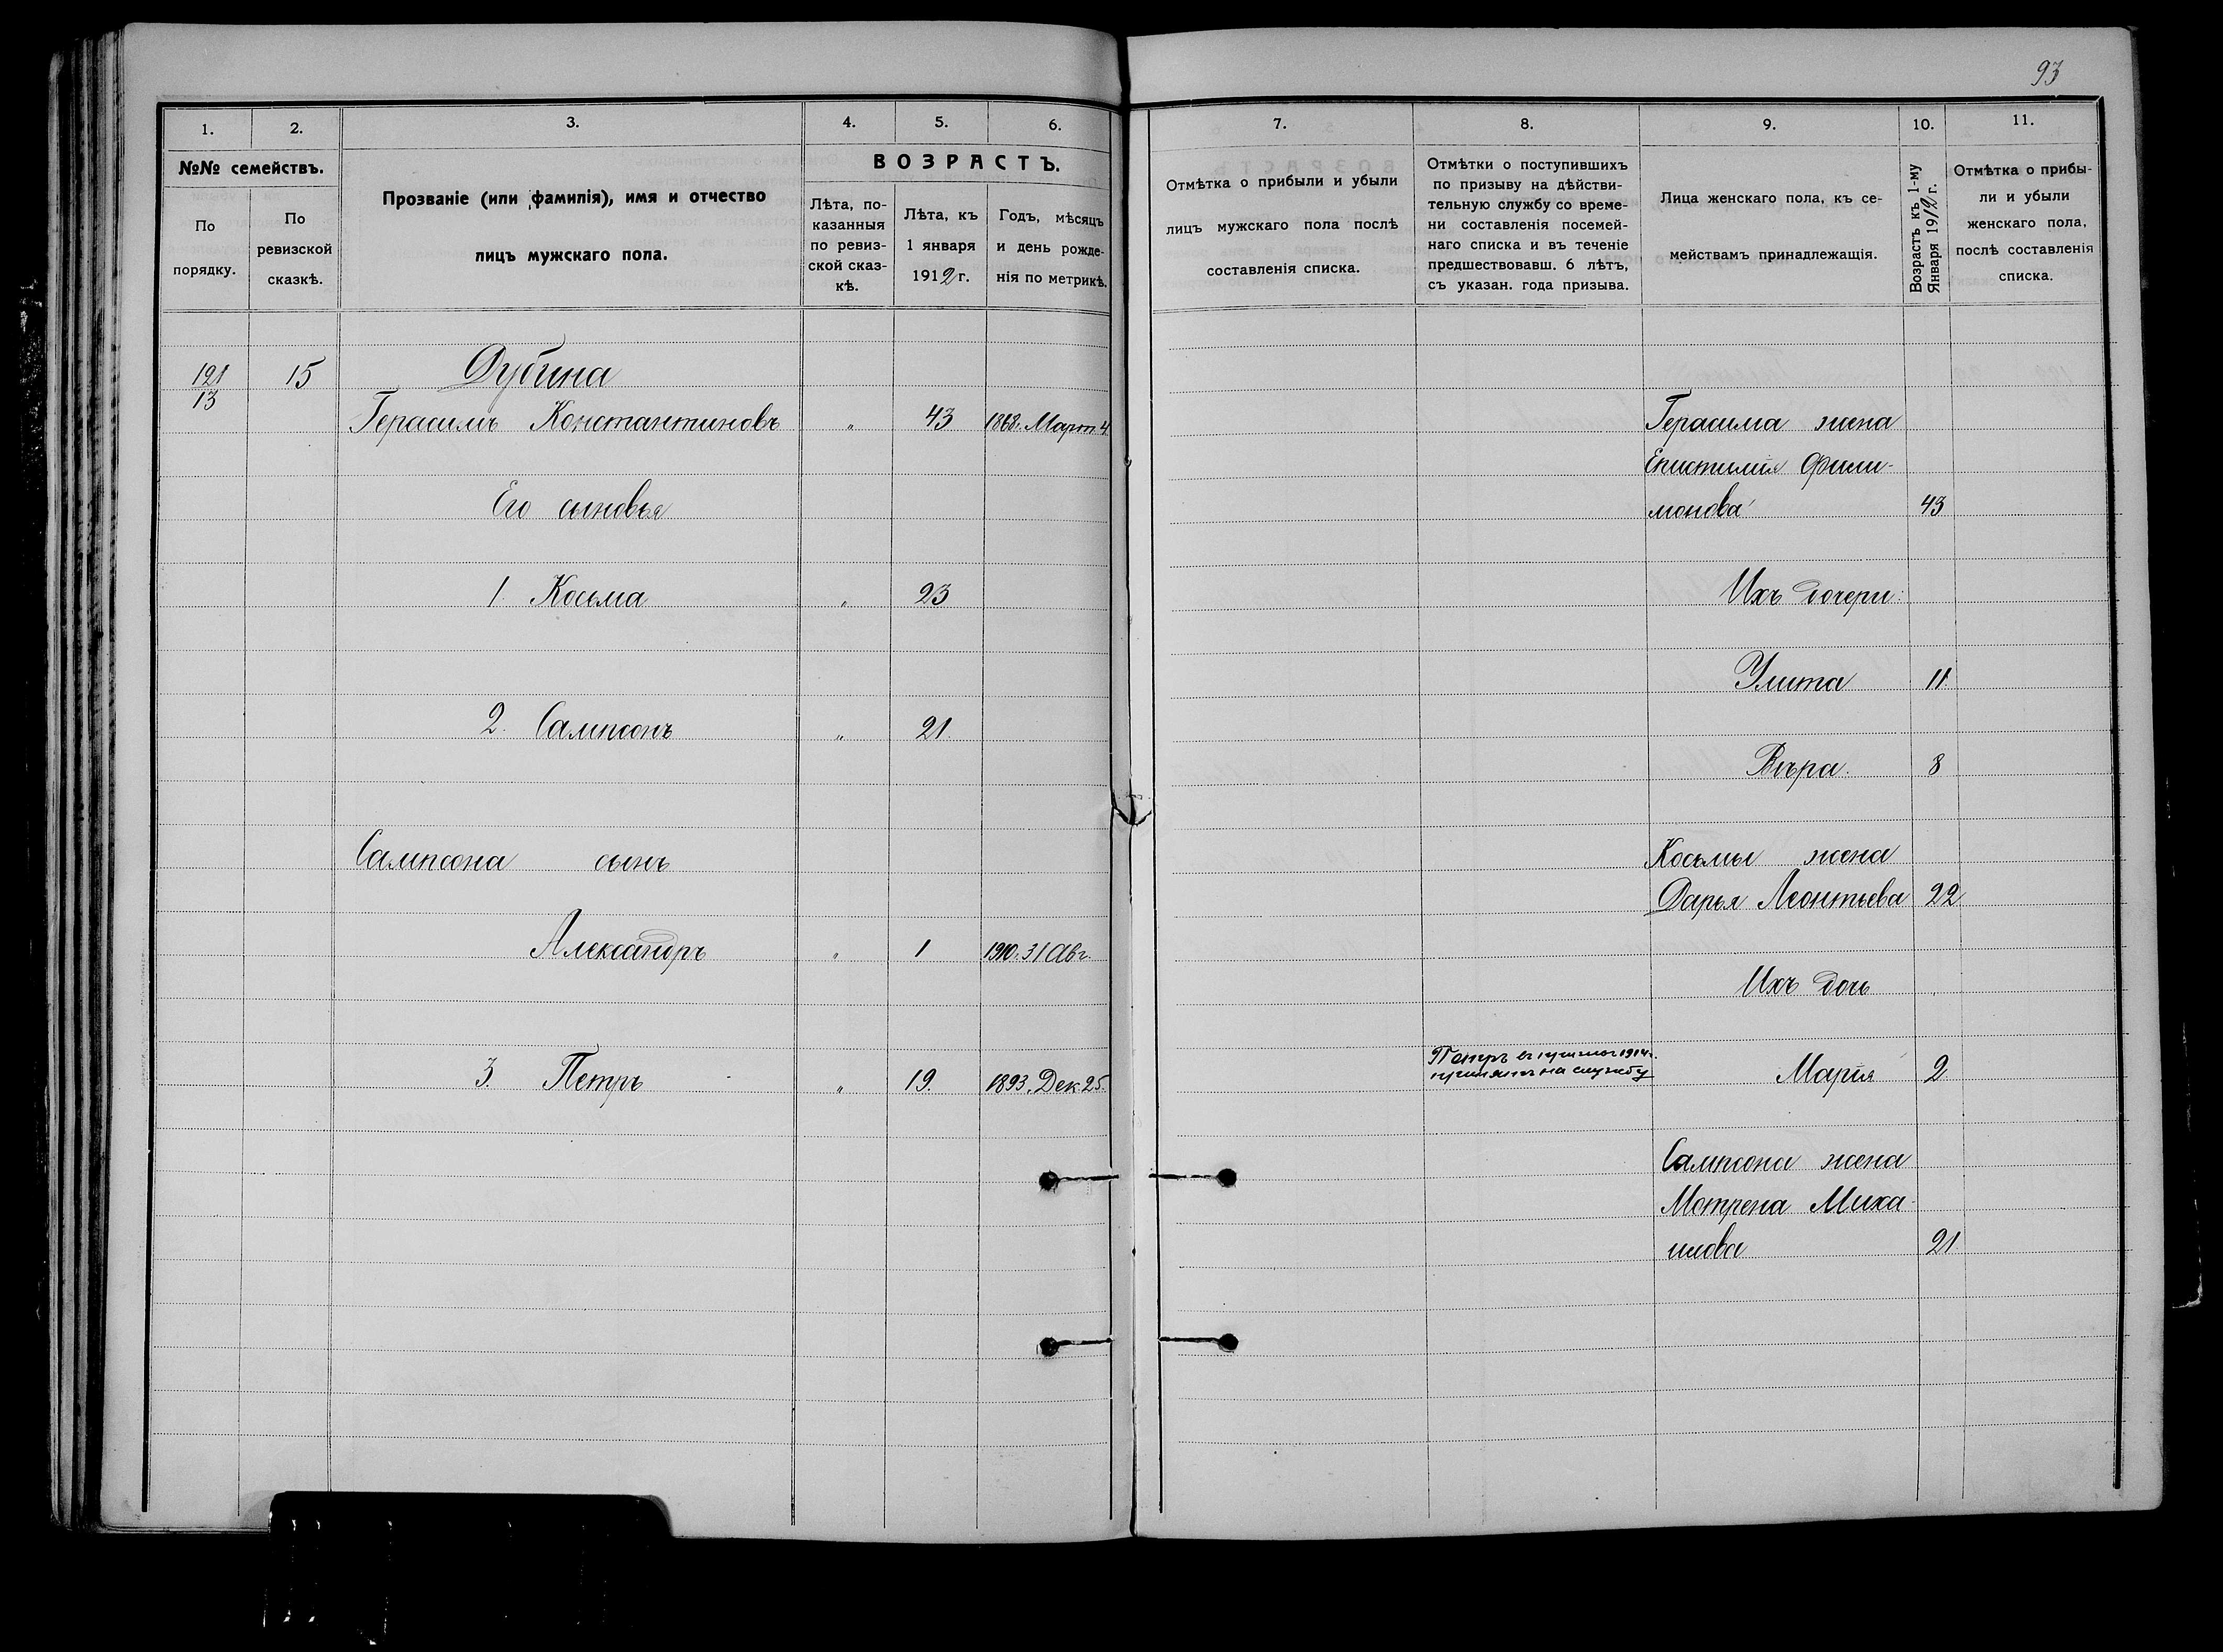 93
1. 2. 3. 4. 5. 6.
№№ семействъ.
По порядку.
По ревизской сказкѣ.
Прозваніе (или фамилія), имя и отчество
лицъ мужскаго пола.
ВОЗРАСТЪ.
Лѣта, по-
казанныя
по ревиз-
ской сказ-
кѣ.
Лѣта, къ
1 января
1912 г.
Годъ, мѣсяцъ
и день рожде-
нія по метрикѣ.
121 15 Дубина
13
Герасимъ Константиновъ " 43 1868. Март. 4
Его сыновья
1. Косьма " 23
2. Сампсонъ " 21
Сампсона сынъ
Александръ " 1 1910. 31 Авг.
3. Петръ " 19. 1893. Дек. 25.
7. 8. 9. 10. 11.
Отмѣтка о прибыли и убыли
лицъ мужскаго пола послѣ
составленія списка.
Отмѣтки о поступившихъ
по призыву на дѣйстви-
тельную службу со време-
ни составленія посемей-
наго списка и въ теченіе
предшествовавш. 6 лѣтъ,
съ указан. года призыва.
Лица женскаго пола, къ се-
мействамъ принадлежащія.
Возрастъ къ 1-му
Января 1912 г.
Отмѣтка о прибы-
ли и убыли
женскаго пола,
послѣ составленія
списка.
Герасима жена
Епистимія Фили-
монова 43
Ихъ дочери:
Улита 11
Вѣра. 8
Косьмы жена
Дарья Леонтьева 22
Ихъ дочь
Петръ въ призывъ 1914 г.
принятъ на службу
Марія 2
Сампсона жена
Мотрена Миха-
илова 21